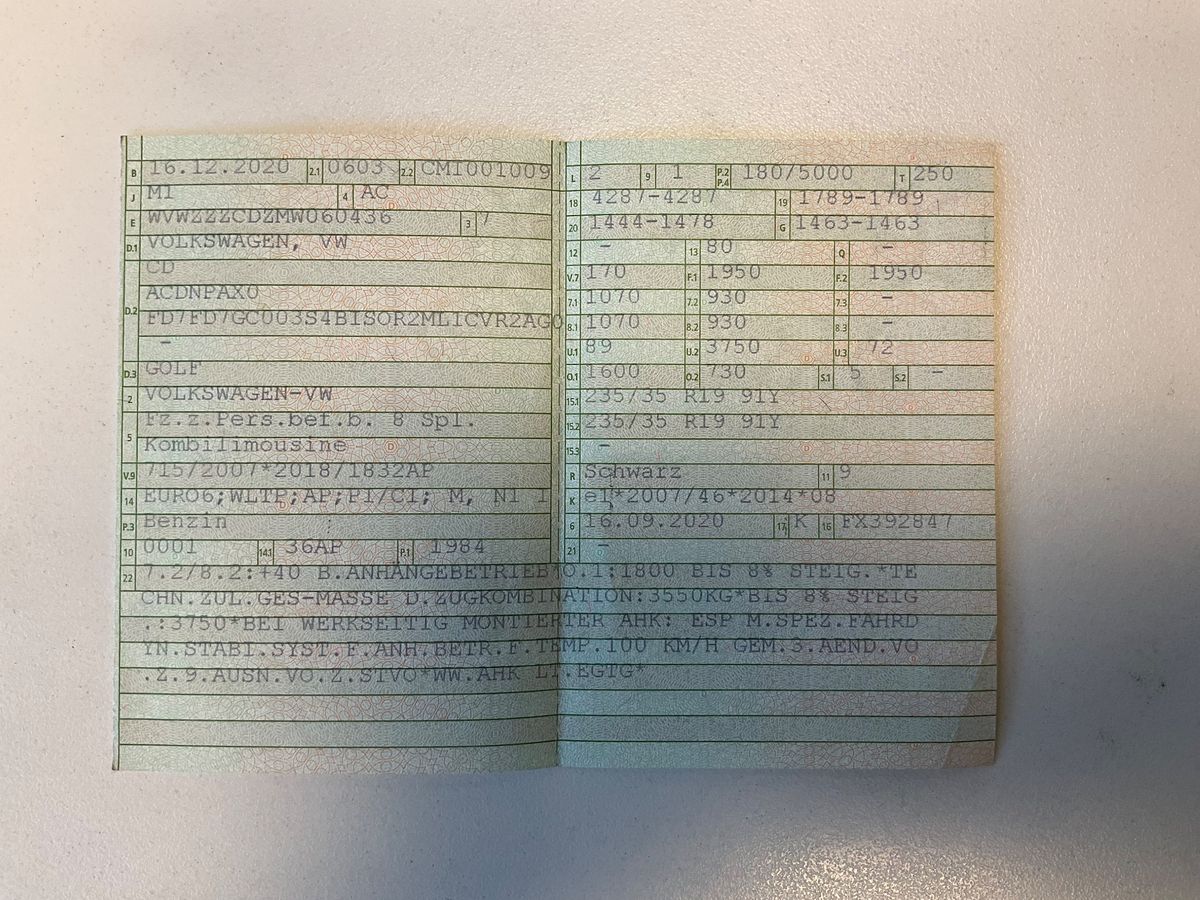 B 16.12.2020 2.1 0603 2.2 CMT001009
J M1 4 AC
E WVWZZZCDZMW060436 3 7
D.1 VOLKSWAGEN, VW
CD
D.2 ACDNPAX0
FD7FD7GC003S4BISOR2ML1CVR2AG0
-
D.3 GOLF
2 VOLKSWAGEN-VW
5 Fz.z.Pers.bef.b. 8 Spl.
Kombilimousine
V.9 715/2007*2018/1832AP
14 EURO6;WLTP;AP;PI/CI; M, N1 I
P.3 Benzin
10 0001 14.1 36AP P.1 1984
L 2 9 1 P.2 P.4 180/5000 T 250
18 4287-4287 19 1789-1789
20 1444-1478 G 1463-1463
12 - 13 80 Q -
V.7 170 F.1 1950 F.2 1950
7.1 1070 7.2 930 7.3 -
8.1 1070 8.2 930 8.3 -
U.1 89 U.2 3750 U.3 72
O.1 1600 O.2 730 S.1 5 S.2 -
15.1 235/35 R19 91Y
15.2 235/35 R19 91Y
15.3 -
R Schwarz 11 9
K e1*2007/46*2014*08
6 16.09.2020 17 K 16 FX392847
21 -
22 7.2/8.2:+40 B.ANHÄNGEBETRIEB*O.1:1800 BIS 8% STEIG.*TE
CHN.ZUL.GES-MASSE D.ZUGKOMBINATION:3550KG*BIS 8% STEIG
.:3750*BEI WERKSEITIG MONTIERTER AHK: ESP M.SPEZ.FAHRD
YN.STABI.SYST.F.ANH.BETR.F.TEMP.100 KM/H GEM.3.AEND.VO
.Z.9.AUSN.VO.Z.STVO*WW.AHK LT.EGTG*